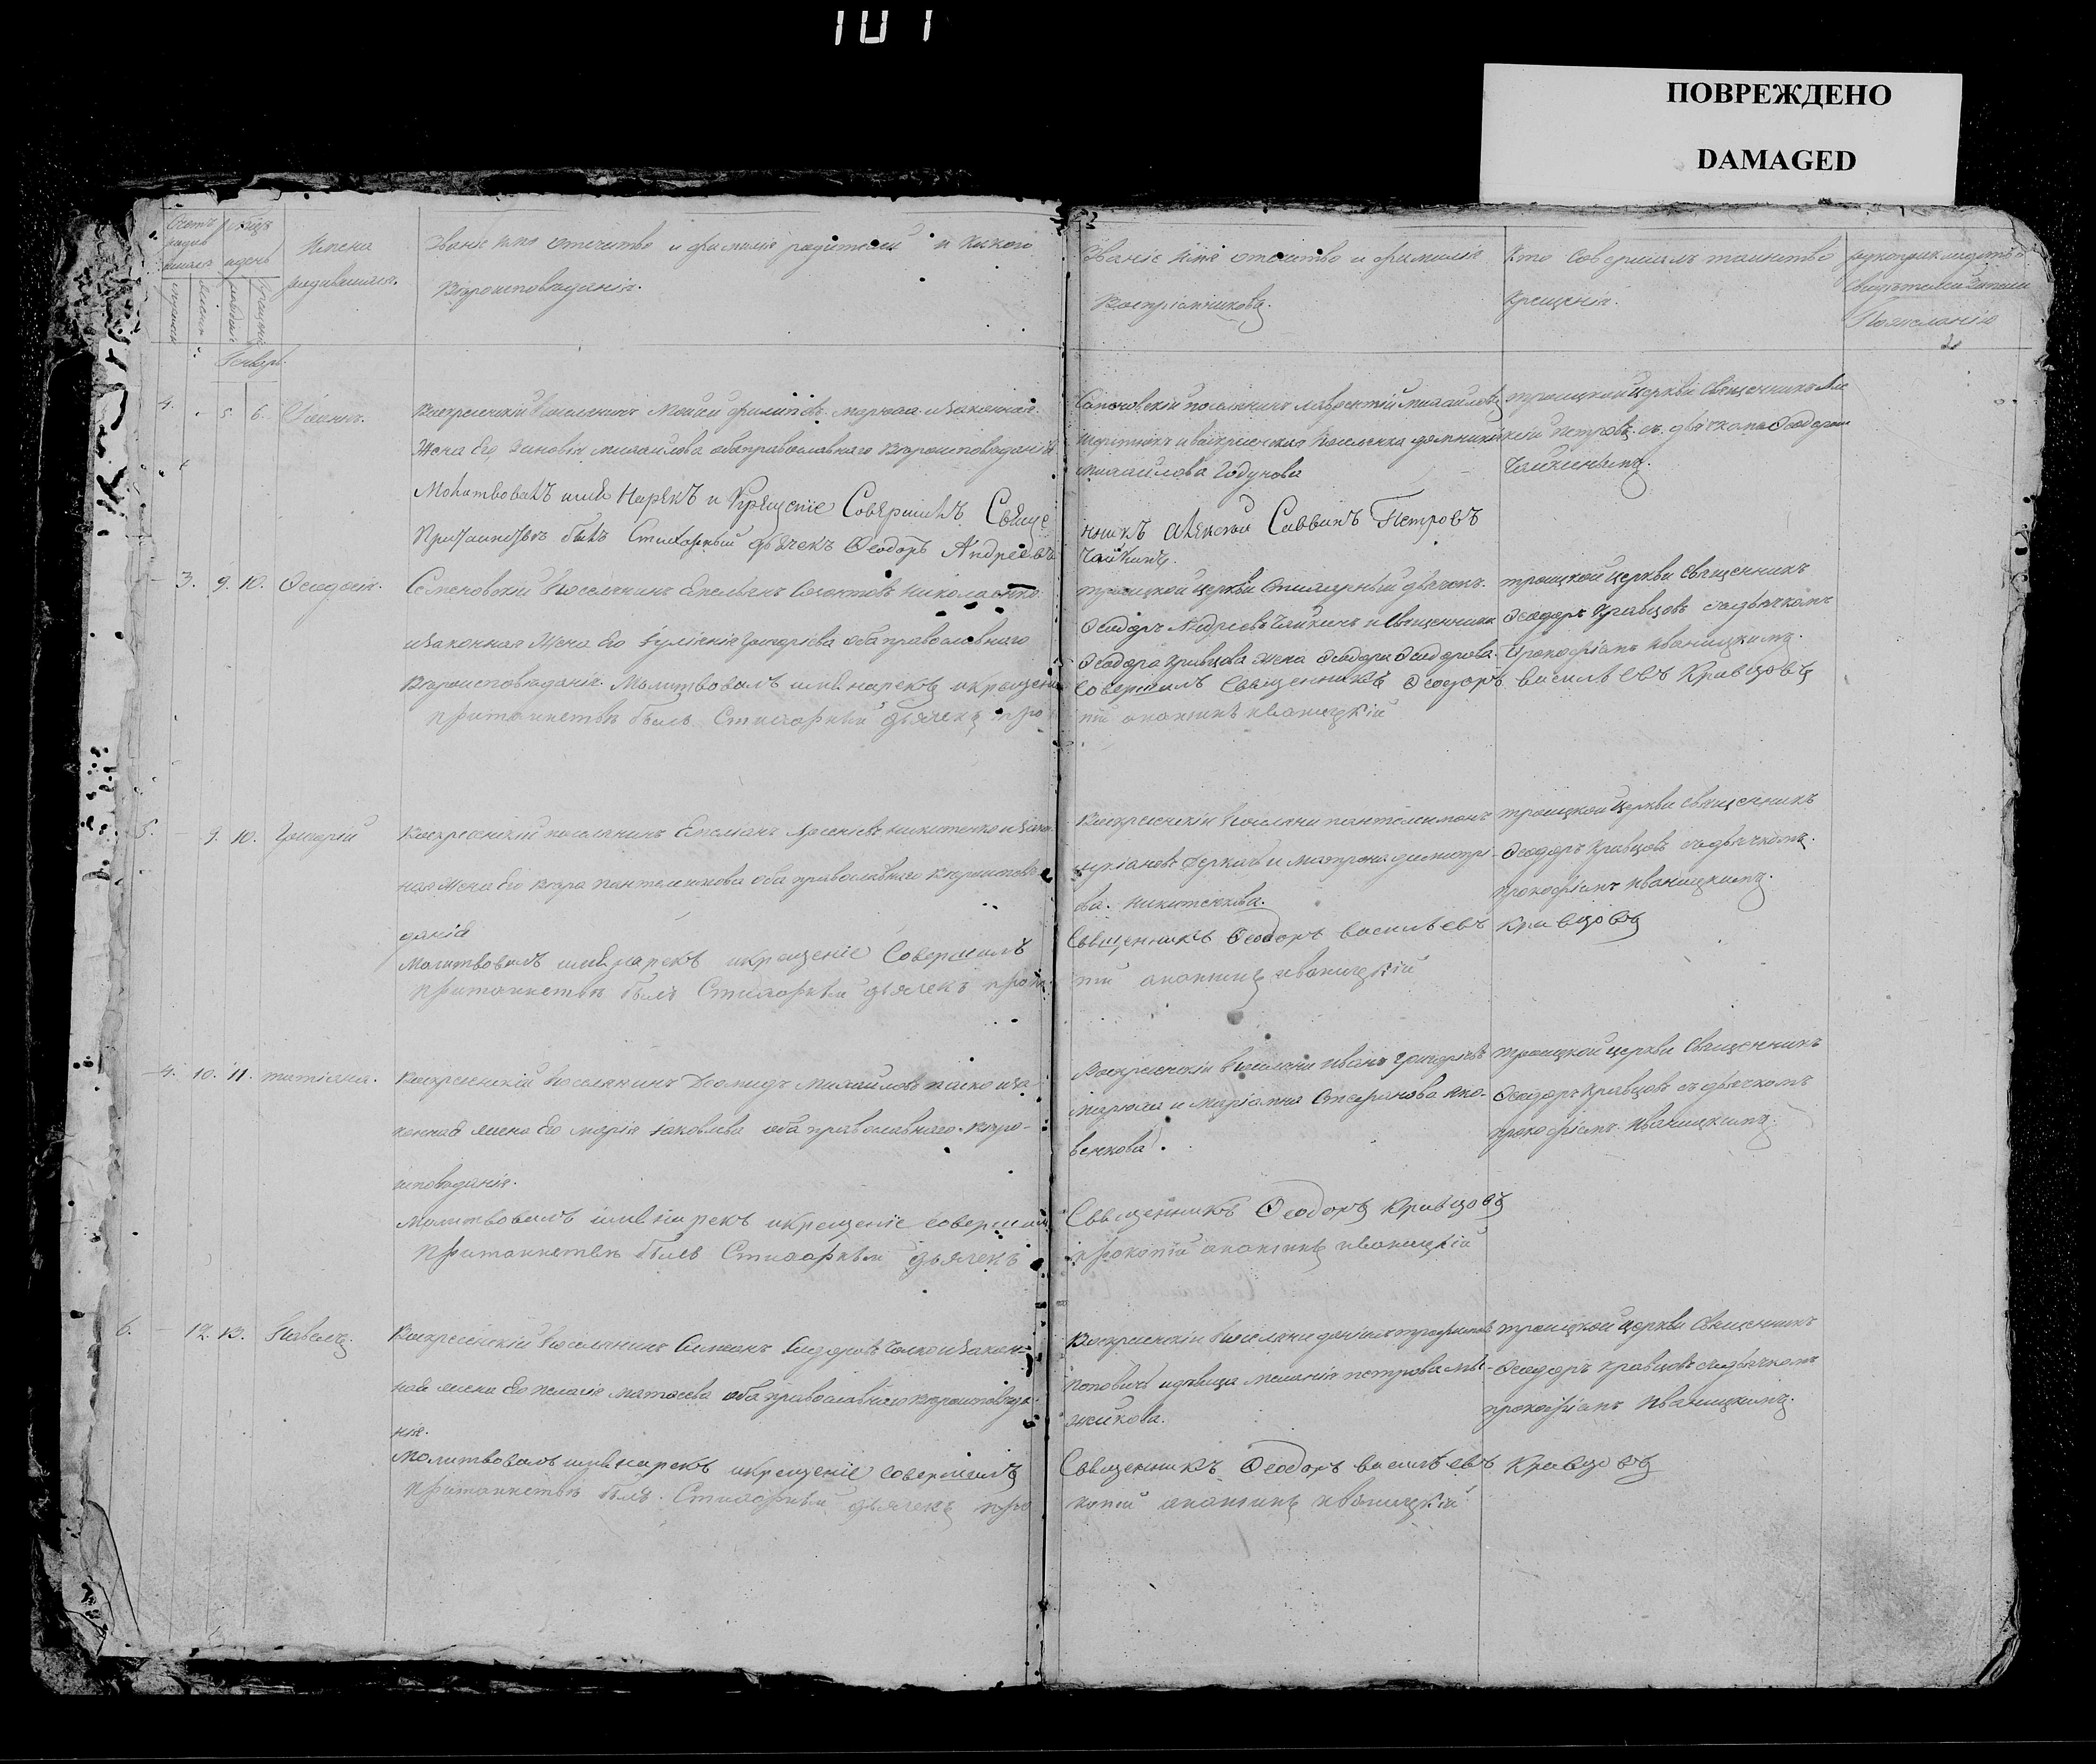 101
ПОВРЕЖДЕНО
DAMAGED
Счетъ родив шихся
Мѣсяцъ и день
Имена родившихся.
Званіе имя отечество и фамилія родителей и какого
Вѣроисповѣданія.
Званіе имя отечество и фамилія
Воспріемниковъ.
Кто совершалъ таинство
Крещенія.
рукоприкладство
свидѣтелей записи
По желанію
Генварь.
4. 5. 6. Іоаннъ.
Воскресенскій поселянинъ Моисей Филиповъ Марюха и законная
Жена Его Зиновія Михайлова оба православнаго Вѣроисповѣданія
Молитвовалъ имя Нарекъ и Крещеніе Совершилъ Свяще
При таинствѣ былъ Стихарный дьячекъ Ѳеодоръ Андреевъ
поселянинъ Лаврентій Михайловъ
и воскресенская поселянка
Михайлова Годунова
нникъ Алексѣй Саввинъ Петровъ
Чайкинъ.
троицкой церкви Священникъ Але
ксій Петровъ съ дьячкомъ Ѳеодоромъ
Чайкинымъ.
3. 9. 10. Ѳеодосія.
Семеновскій поселянинъ Емельянъ Николаенко
и законная Жена Его Григорьева оба православнаго
Вѣроисповѣданія. Молитвовалъ имя нарекъ и крещеніе
при таинствѣ былъ Стихарный дьячекъ проко
троицкой церкви Стихарный дьячекъ
Ѳеодоръ Андреевъ Чайкинъ и Священника
Ѳеодора Кравцова жена Ѳеодора Ѳеодорова.
Совершилъ Священникъ Ѳеодоръ васильевъ Кравцовъ
пій иваницкій
троицкой церкви Священникъ
Ѳеодоръ Кравцовъ съ дьячкомъ
Прокофіемъ Иваницкимъ.
5. 9. 10. Григорій
Воскресенскій поселянинъ Никитенко и закон
ная Жена Его Вѣра Пантелимонова оба православнаго Вѣроисповѣ
данія
Молитвовалъ имя нарекъ и крещеніе Совершилъ
при таинствѣ былъ Стихарный дьячекъ проко
Воскресенскіи поселяни пантелимонъ
Деркачъ и Матрона димитрі
ева Никитенкова.
Священникъ Ѳеодоръ васильевъ Кравцовъ
пій иваницкій
троицкой церкви Священникъ
Ѳеодоръ Кравцовъ съ дьячкомъ
прокофіемъ Иваницкимъ.
4. 10. 11. татіана.
Воскресенскій поселянинъ Діомидъ Михайловъ и за
конная жена Его Марія Іаковлева оба православнаго Вѣро-
исповѣданія.
Молитвовалъ имя нарекъ и крещеніе совершилъ
При таинствѣ былъ Стихарный дьячекъ
Воскресенскіи поселяни Иванъ Григорьевъ
Марюха и Маріамна Стефанова Яко-
венкова.
Священникъ Ѳеодоръ Кравцовъ
прокопій иваницкій
троицкой церкви Священникъ
Ѳеодоръ Кравцовъ съ дьячкомъ
прокофіемъ Иваницкимъ.
6. 12. 13. Павелъ.
Воскресенскій поселянинъ Симеонъ и закон-
ная жена Его Пелагія Матѳеева оба православнаго Вѣроисповѣда-
нія.
Молитвовалъ имя нарекъ и крещеніе совершилъ
При таинствѣ былъ Стихарный дьячекъ про
Воскресенскіи поселяни Даніилъ Трофимовъ
Поповичъ и дѣвица Меланія Петрова
Священникъ Ѳеодоръ васильевъ Кравцовъ
копій иваницкій
троицкой церкви Священникъ
Ѳеодоръ Кравцовъ съ дьячкомъ
прокофіемъ Иваницкимъ.